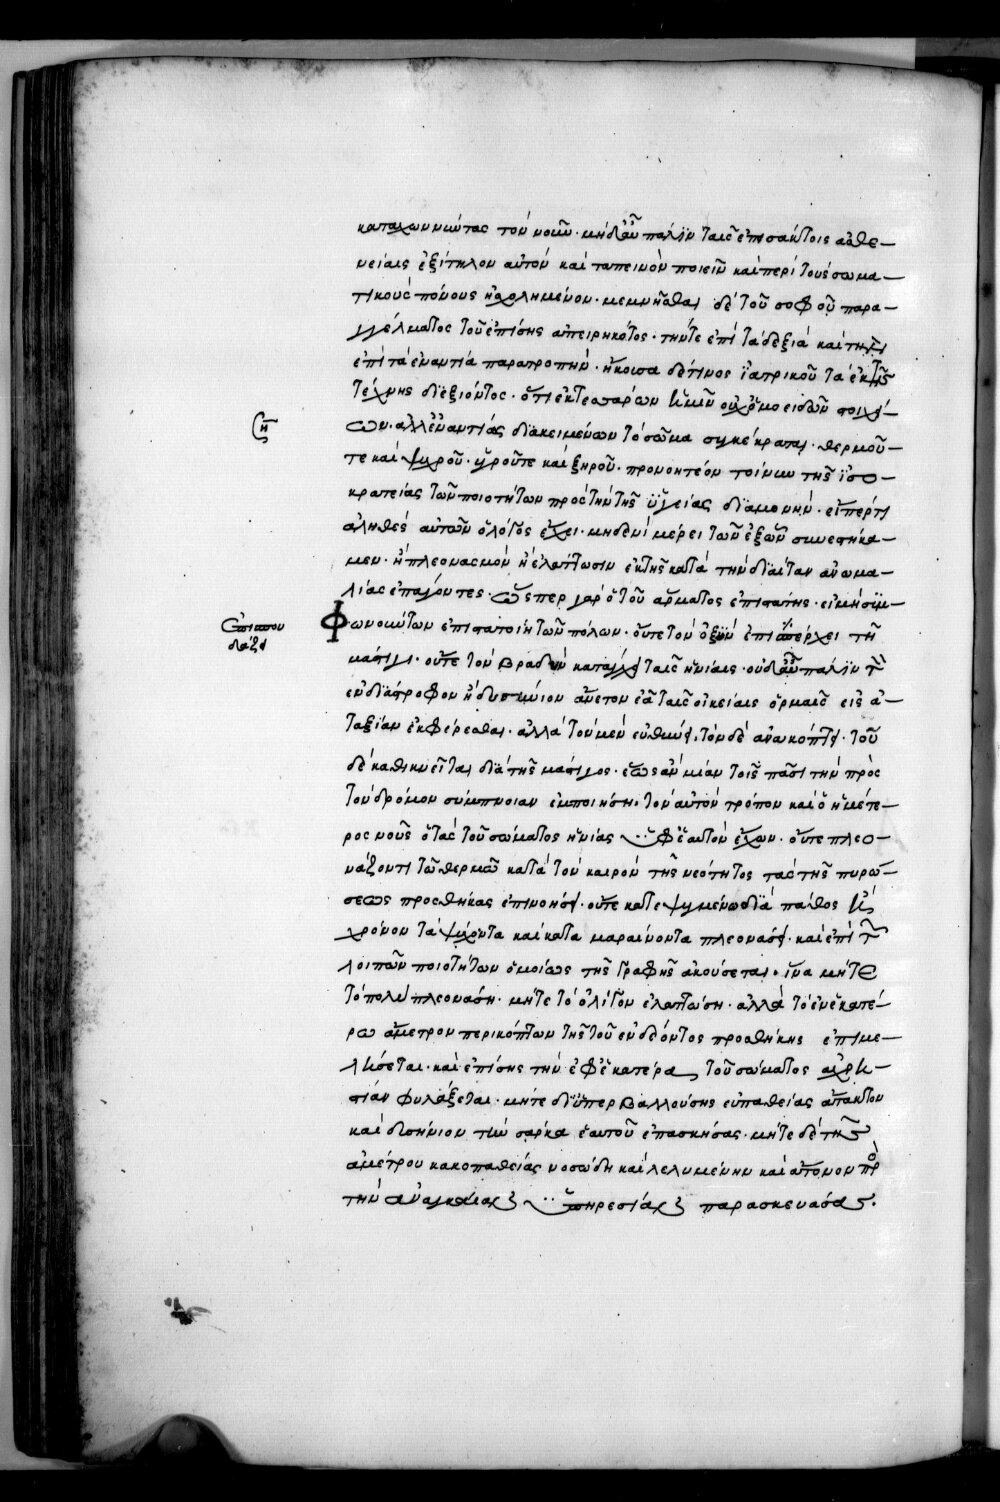 καταχωννύντας τὸν νοῦν· μὴδ᾽ αὖ πάλιν ταῖς ἐπεισάκτοις ἀσθε-
νείαις ἐξίτηλον αὐτὸν καὶ ταπεινὸν ποιεῖν καὶ περὶ τοὺς σωμα-
τικοὺς πόνους ἠσχολημένον· μεμνῆσθαι δὲ τοῦ σοφοῦ παρα-
γγέλματος τοῦ ἐπίσης ἀπειρηκότος· τήν τε ἐπὶ τὰ δεξιὰ καὶ τὴν
ἐπὶ τὰ ἐναντία παρατροπήν· ἤκουσα δέ τινος ἰατρικοῦ τὰ ἐκ τῆς
τέχνης διεξιόντος· ὅτι ἐκ τεσσάρων ἡμῖν οὐχ ὁμοειδῶν στοιχεί-
ων· ἀλλ᾽ ἐναντίως διακειμένων τὸ σῶμα συγκέκραται· θερμοῦ
τε καὶ ψυχροῦ· ὑγροῦ τε καὶ ξηροῦ· προνοητέον τοίνυν τῆς ἰσο-
κρατείας τῶν ποιοτήτων πρὸς τὴν τῆς ὑγείας διαμονήν· εἴπερ τι
ἀληθὲς αὐτῶν ὁ λόγος ἔχει· μηδενὶ μέρει τῶν ἐξ ὧν συνεστήκα-
μεν· ἢ πλεονασμὸν ἢ ἐλάττωσιν ἐκ τῆς κατὰ τὴν δίαιταν ἀνωμα-
λίας ἐπάγοντες· ὥσπερ γὰρ ὁ τοῦ ἅρματος ἐπιστάτης· εἰ μὴ συμ-
φωνούντων ἐπιστατοίη τῶν πώλων· οὔτε τὸν ὀξὺν ἐπισπέρχει τῇ
μάστιγι· οὔτε τὸν βραδὺν κατάγχει ταῖς ἡνίαις· οὐδ᾽ αὖ πάλιν τὸν
ἐνδιάστροφον ἢ δυσήνιον ἄνετον ἐᾷ ταῖς οἰκείαις ὁρμαῖς εἰς ἀ-
ταξίαν ἐκφέρεσθαι· ἀλλὰ τὸν μὲν εὐθύνει, τὸν δὲ ἀνακόπτει· τοῦ
δὲ καθικνεῖται διὰ τῆς μάστιγος· ἕως ἂν μίαν τοῖς πᾶσι τὴν πρὸς
τὸν δρόμον σύμπνοιαν ἐμποιήσῃ· τὸν αὐτὸν τρόπον καὶ ὁ ἡμέτε-
ρος νοῦς ὁ τὰς τοῦ σώματος ἡνίας ὑφ᾽ ἑαυτὸν ἔχων· οὔτε πλεο-
νάζοντι τῷ θερμῷ κατὰ τὸν καιρὸν τῆς νεότητος τὰς τῆς πυρώ-
σεως προσθήκας ἐπινοήσει· οὔτε κατεψυγμένῳ διὰ πάθος ἢ
χρόνον τὰ ψύχοντα καὶ κατα μαραίνοντα πλεονάσει· καὶ ἐπὶ τῶν
λοιπῶν ποιοτήτων ὁμοίως τῆς γραφῆς ἀκούσεται· ἵνα μήτε
τὸ πολὺ πλεονάσῃ· μήτε τὸ ὀλίγον ἐλαττώσῃ· ἀλλὰ τὸ ἐν ἑκατέ-
ρῳ ἄμετρον περικόπτων τῆς τοῦ ἐνδέοντος προσθήκης ἐπιμε-
λήσεται· καὶ ἐπίσης τὴν ἐφ᾽ ἑκατέρα τοῦ σώματος ἀχρη-
στίαν φυλάξεται· μήτε δι᾽ ὑπερβαλλούσης εὐπαθείας ἄτακτον
καὶ δυσήνιον τὴν σάρκα ἑαυτοῦ ἐπασκήσας· μήτε δὲ τῆς
ἀμέτρου κακοπαθείας νοσώδη καὶ λελυμένην καὶ ἄτονον πρὸς
τὴν ἀναγκαίας ὑπηρεσίας παρασκευάσας.